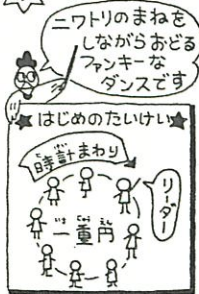 ニワトリのまねを
しながらおどる
ファンキーな
ダンスです
★はじめのたいけい★
時計まわり
とけい
リーダー
一重円
いちじゅうえん